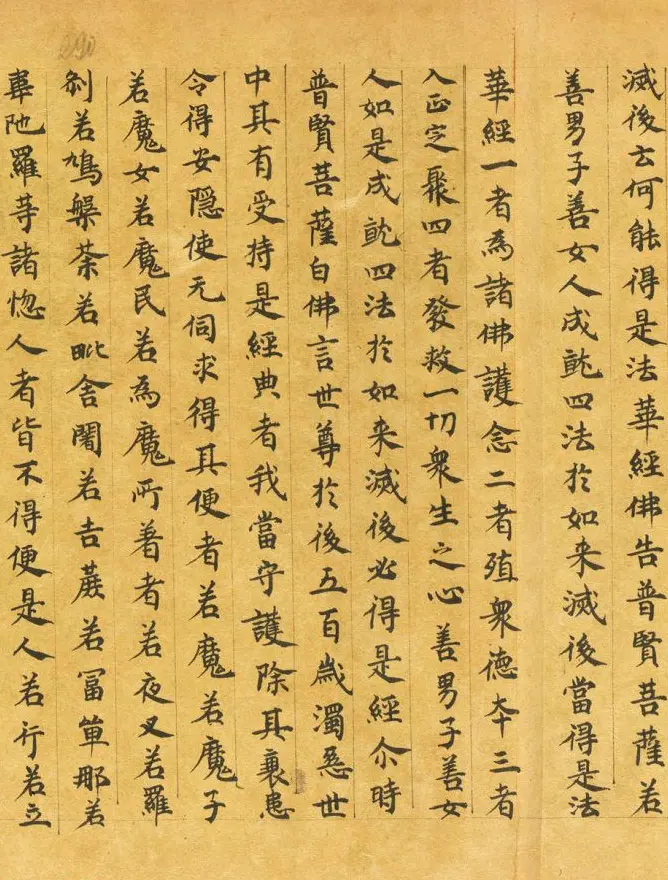 290
滅後云何能得是法華經佛告普賢菩薩若
善男子善女人成就四法於如来滅後當得是法
華經一者為諸佛護念二者殖衆徳夲三者
入正定聚四者發救一切衆生之心善男子善女
人如是成就四法於如来滅後必得是經尒時
普賢菩薩白佛言世尊於後五百歲濁惡世
中其有受持是經典者我當守護除其衰患
令得安隱使无伺求得其便者若魔若魔子
若魔女若魔民若為魔所著者若夜叉若羅
剎若鳩槃荼若毗舍闍若吉蔗若冨單那若
韋陁羅等諸惱人者皆不得便是人若行若立